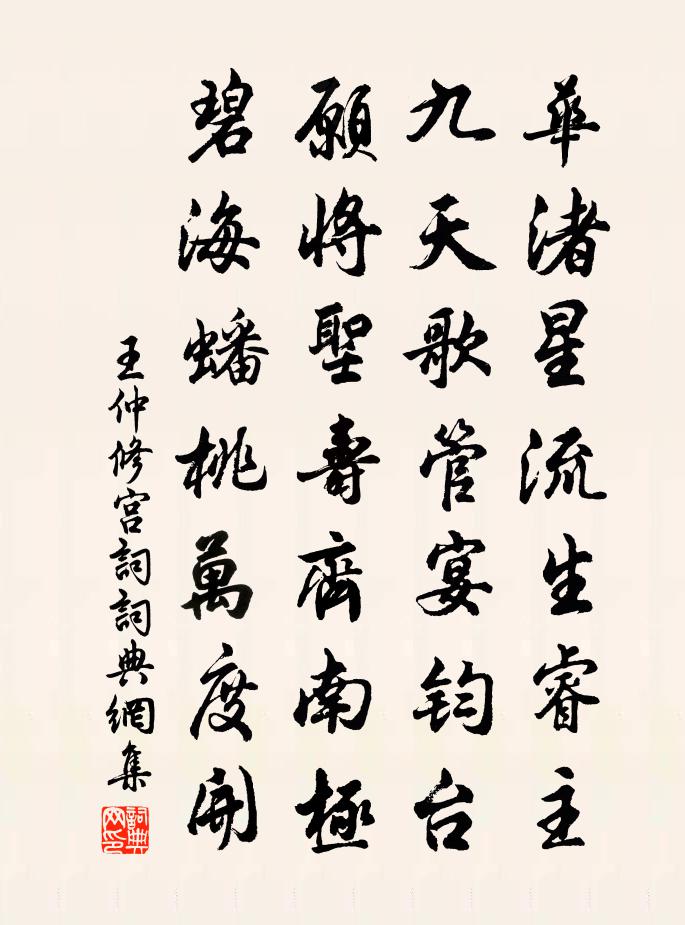 華渚星流生睿主
九天歌管宴鈞台
願將聖壽齊南極
碧海蟠桃萬度開
王仲修宮詞詞典網集
詞典网印